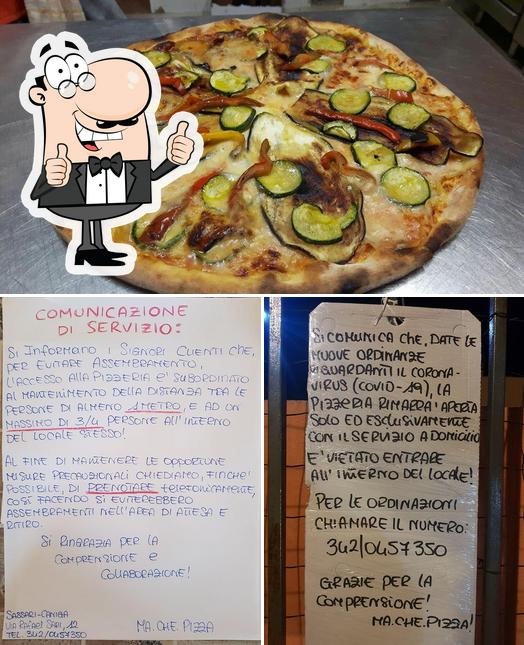 COMUNICAZIONE
DI SERVIZIO:
SI INFORMANO I SIGNORI CLIENTI CHE,
PER EVITARE ASSEMBRAMENTO,
L'ACCESSO ALLA PIZZERIA E' SUBORDINATO
AL MANTENIMENTO DELLA DISTANZA TRA LE
PERSONE DI ALMENO 1 METRO, E AD UN
MASSIMO DI 3/4 PERSONE ALL'INTERNO
DEL LOCALE STESSO!
AL FINE DI MANTENERE LE OPPORTUNE
MISURE PRECAUZIONALI CHIEDIAMO, FINCHE'
POSSIBILE, DI PRENOTARE TELEFONICAMENTE,
COSÌ FACENDO SI EVITEREBBERO
ASSEMBRAMENTI NELL'AREA DI ATTESA E
RITIRO.
SI RINGRAZIA PER LA
COMPRENSIONE E
COLLABORAZIONE!
SASSARI-CANIGA
VIA RAFAEL SARI, 12
TEL. 342/0457350
MA.CHE.PIZZA
SI COMUNICA CHE, DATE LE
NUOVE ORDINANZE
RIGUARDANTI IL CORONA-
VIRUS (COVID-19), LA
PIZZERIA RIMARRA' APERTA
SOLO ED ESCLUSIVAMENTE
CON IL SERVIZIO A DOMICILIO
E' VIETATO ENTRARE
ALL'INTERNO DEL LOCALE!
PER LE ORDINAZIONI
CHIAMARE IL NUMERO:
342/0457350
GRAZIE PER LA
COMPRENSIONE!
MA.CHE.PIZZA!